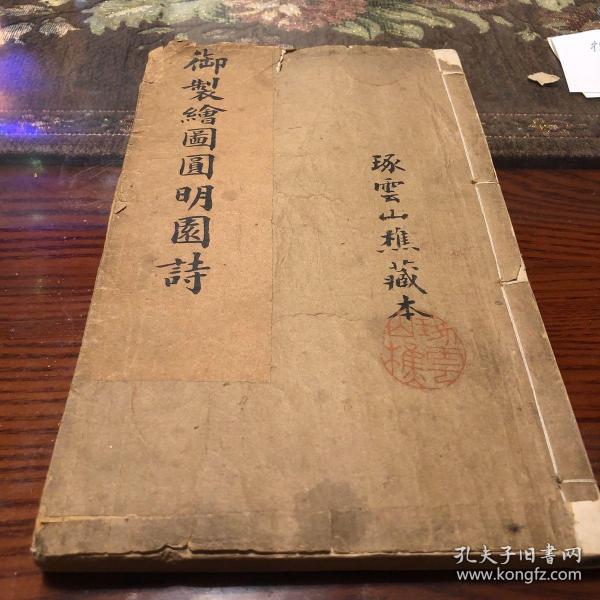 御製繪圖圓明園詩
琢雲山樵藏本
琢雲山樵
孔夫子旧書网
www.kongfz.com